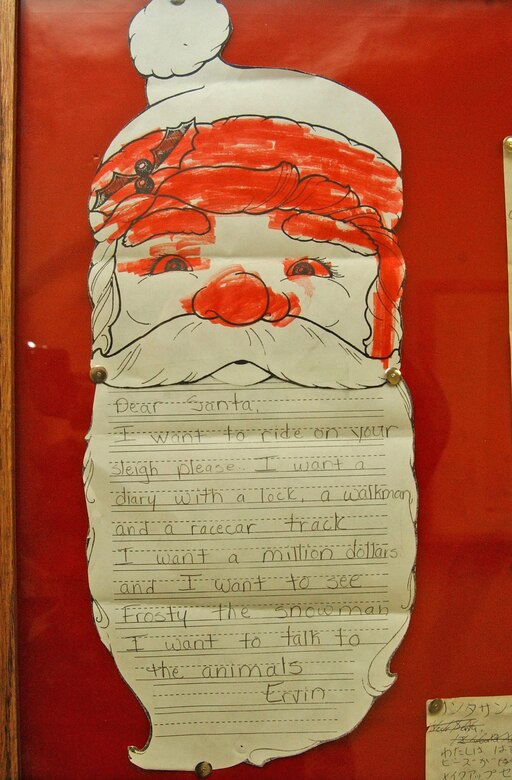 Dear Santa,
I want to ride on your
sleigh please. I want a
diary with a lock, a walkman
and a racecar track
I want a million dollars
and I want to see
Frosty the snowman
I want to talk to
the animals
Ervin
ンタサン
わたしは、は